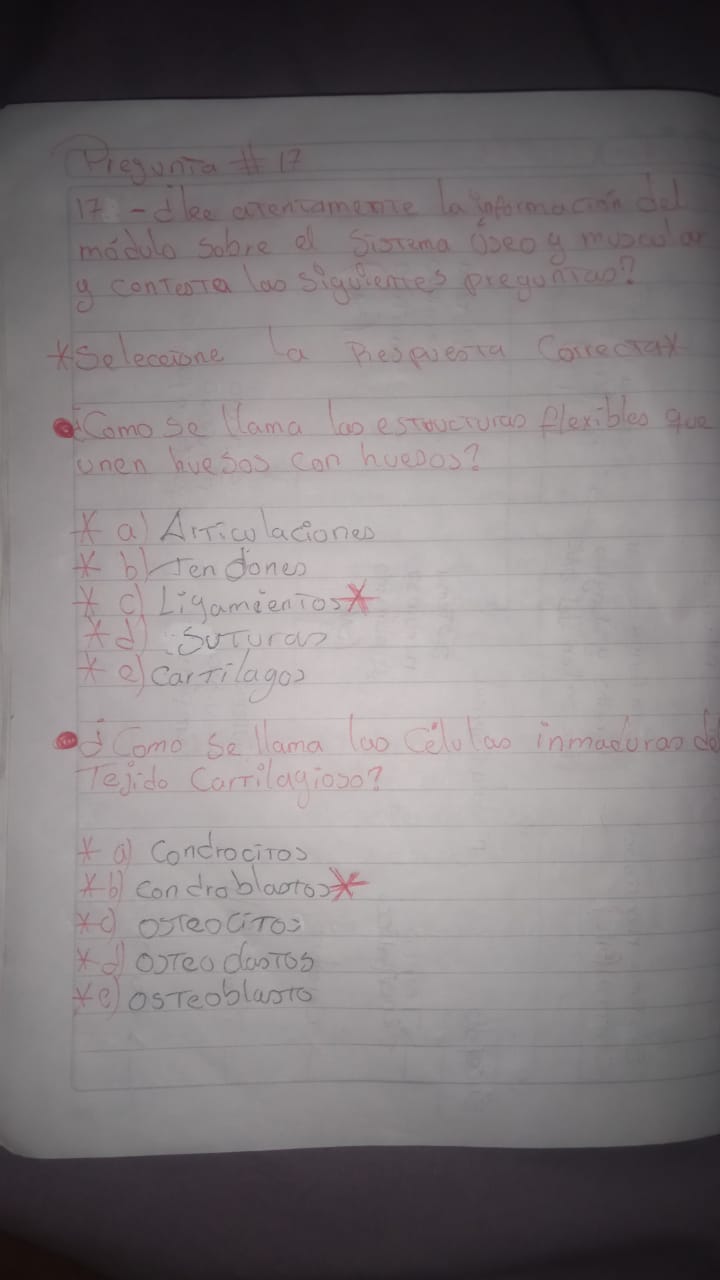 Pregunta # 17
17 - ¿lee atentamente la información del
módulo sobre el sistema óseo y muscular
y contesta las siguientes preguntas?
*Seleccione la Respuesta Correcta*
¿Como se llama las estructuras flexibles que
unen huesos con huesos?
* a) Articulaciones
* b) Tendones
* c) Ligamientos *
* d) Suturas
* e) Cartílagos
¿Como se llama las Células inmaduras del
Tejido Cartilagioso?
* a) Condrocitos
* b) condroblastos *
* c) osteocitos
* d) osteo
* e) osteoblasto